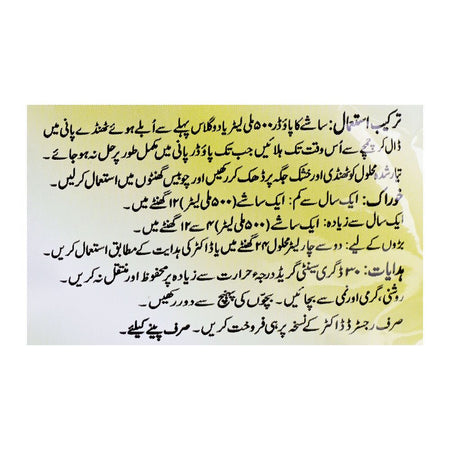 ترکیب استعمال: ساشے کا پاؤڈر ۵۰۰ ملی لیٹر یا دو گلاس پہلے سے اُبلے ہوئے ٹھنڈے پانی میں
ڈال کر چمچے سے اُس وقت تک ہلائیں جب تک پاؤڈر پانی میں مکمل طور پر حل نہ ہو جائے۔
تیار شدہ محلول کو ٹھنڈی اور خشک جگہ پر ڈھک کر رکھیں اور چوبیس گھنٹوں میں استعمال کر لیں۔
خوراک: ایک سال سے کم: ایک ساشے (۵۰۰ ملی لیٹر) ۱۲ گھنٹے میں۔
ایک سال سے زیادہ: ایک ساشے (۵۰۰ ملی لیٹر) ۴ سے ۱۲ گھنٹے میں۔
بڑوں کے لیے: دو سے چار لیٹر محلول ۲۴ گھنٹے میں یا ڈاکٹر کی ہدایت کے مطابق استعمال کریں۔
ہدایات: ۳۰ ڈگری سینٹی گریڈ درجۂ حرارت سے زیادہ پر محفوظ اور منتقل نہ کریں۔
روشنی، گرمی اور نمی سے بچائیں۔ بچوں کی پہنچ سے دور رکھیں۔
صرف رجسٹرڈ ڈاکٹر کے نسخہ پر ہی فروخت کریں۔ صرف پینے کیلئے۔